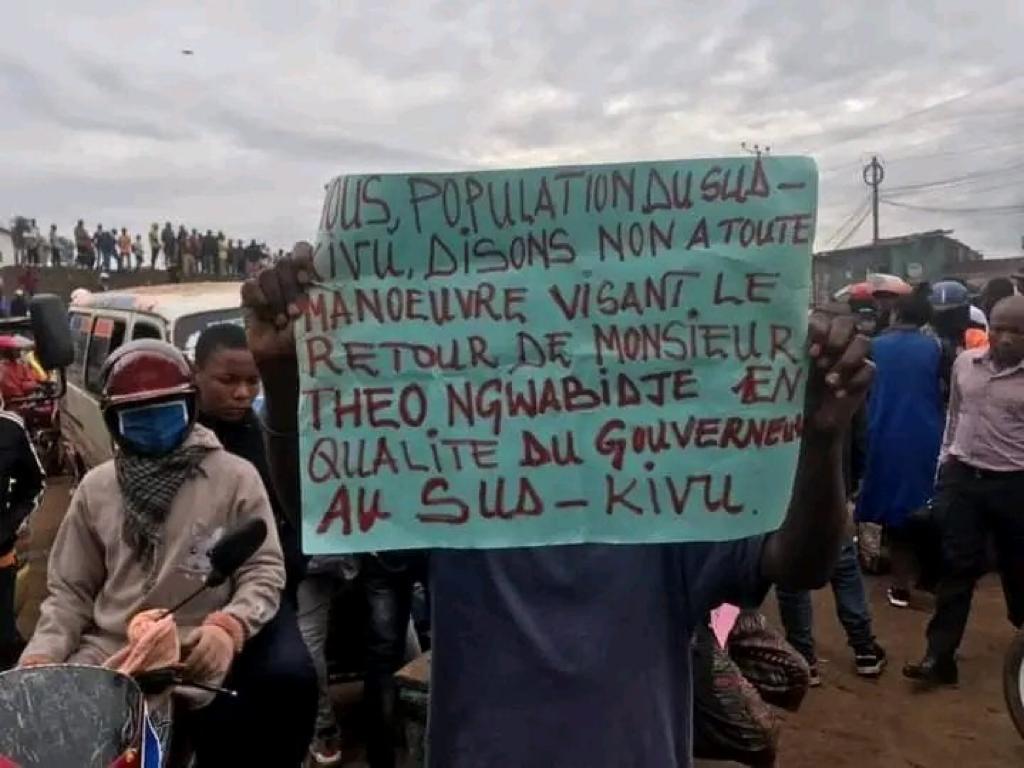 OUS, POPULATION DU SUD-
KIVU, DISONS NON A TOUTE
MANOEUVRE VISANT LE
RETOUR DE MONSIEUR
THEO NGWABIDJE EN
QUALITE DU GOUVERNEUR
AU SUD-KIVU.